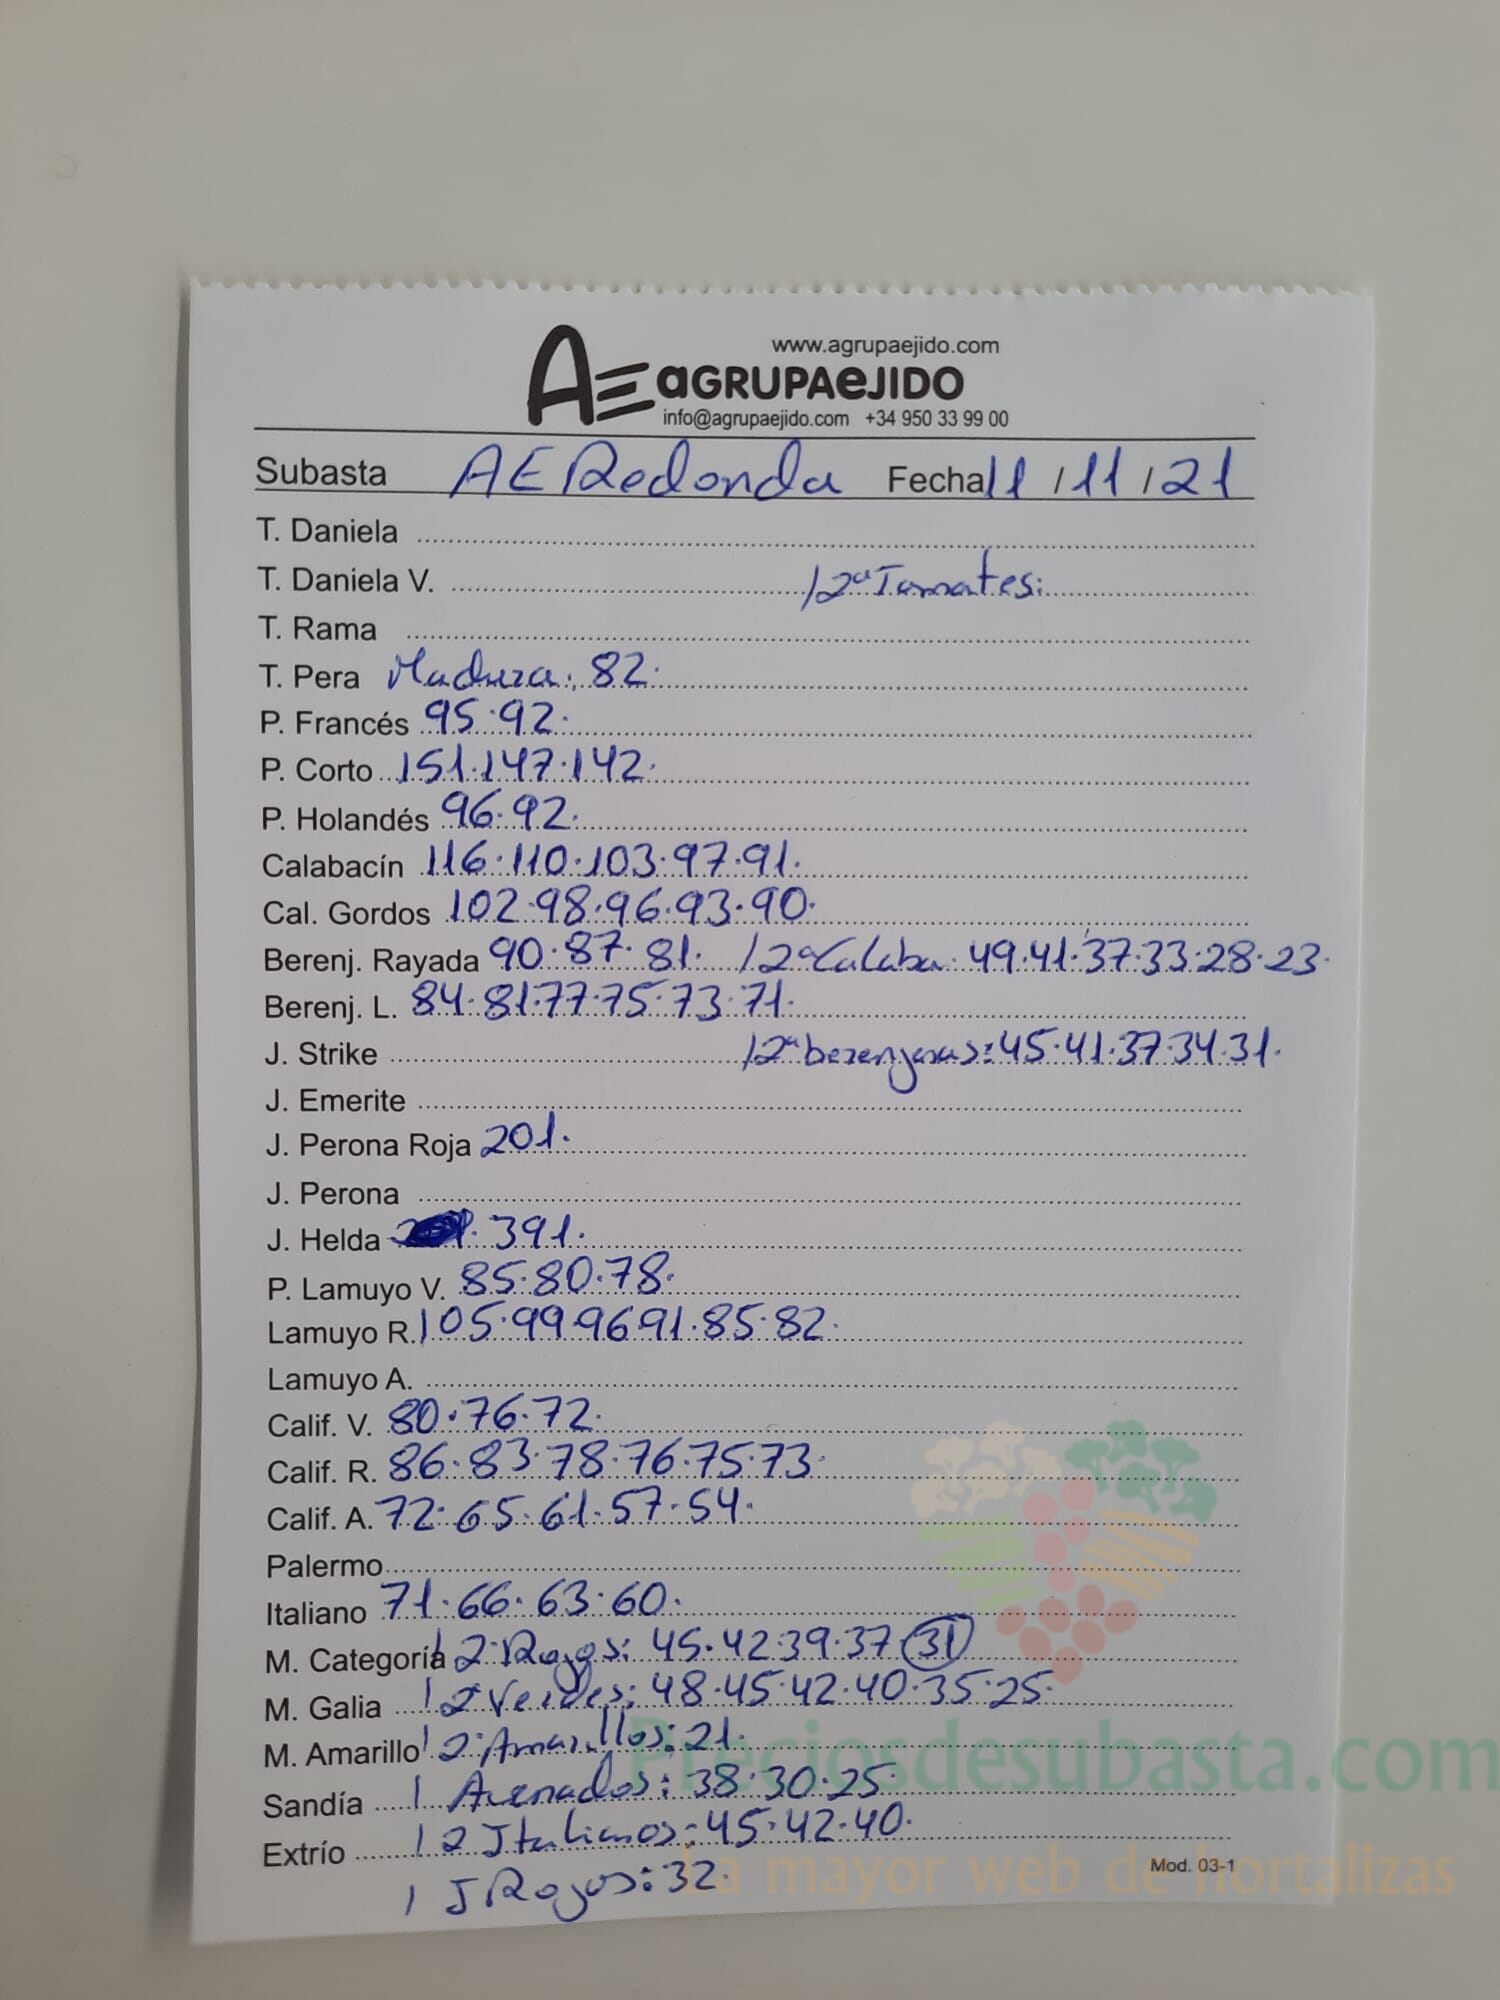 www.agrupaejido.com
AE aGRUPAeJIDO
info@agrupaejido.com +34 950 33 99 00
Subasta AE Redonda Fecha 11/11/21
T. Daniela
T. Daniela V. /2ª Tomates:
T. Rama
T. Pera Madura: 82.
P. Francés 95.92.
P. Corto 151.147.142.
P. Holandés 96.92.
Calabacín 116.110.103.97.91.
Cal. Gordos 102.98.96.93.90.
Berenj. Rayada 90.87.81. /2ª Calaba. 49.41.37.33.28.23.
Berenj. L. 84.81.77.75.73.71.
J. Strike /2ª berenjenas: 45.41.37.34.31.
J. Emerite
J. Perona Roja 201.
J. Perona
J. Helda 391.
P. Lamuyo V. 85.80.78.
Lamuyo R. 105.99.96.91.85.82.
Lamuyo A.
Calif. V. 80.76.72.
Calif. R. 86.83.78.76.75.73.
Calif. A. 72.65.61.57.54.
Palermo
Italiano 71.66.63.60.
M. Categoría / 2ª Rojos: 45.42.39.37 (31)
M. Galia / 2ª Verdes: 48.45.42.40.35.25.
M. Amarillo / 2ª Amarillos: 21.
Sandía / Asenados: 38.30.25.
Extrío / 2 Italianos: 45.42.40.
Mod. 03-1
/ J Rojos: 32.
Preciosdesubasta.com
La mayor web de hortalizas